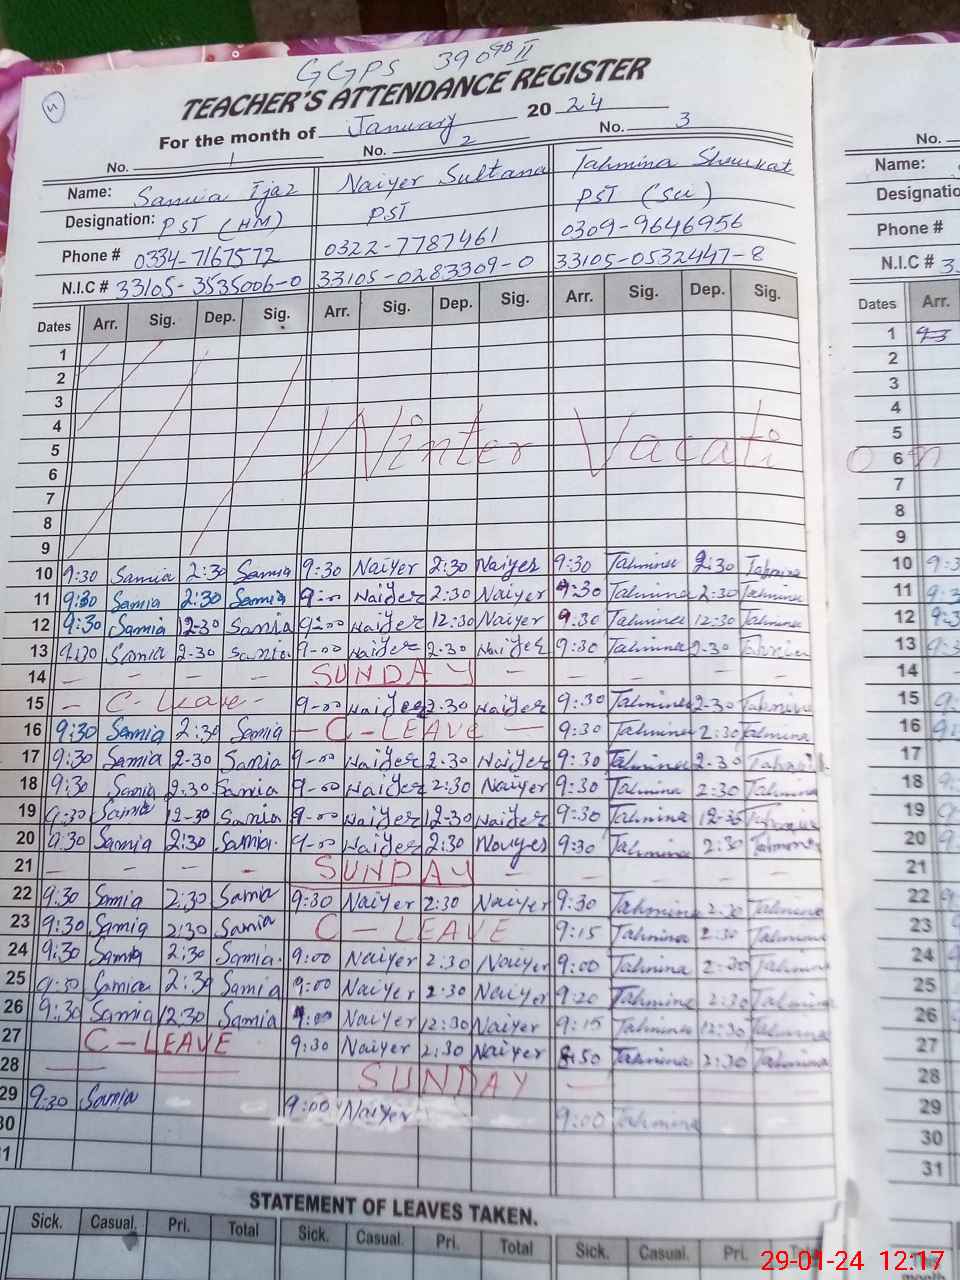 GGPS 390 GB II
TEACHER'S ATTENDANCE REGISTER
For the month of January 2024
No. 1 No. 2 No. 3 No.
Name: Samia Ijaz Naiyer Sultana Tahmina Shoukat Name:
Designation: PST (HM) PST PST (Sci) Designatio
Phone # 0334-7167572 0322-7787461 0309-9646956 Phone #
N.I.C # 33105-3535006-0 33105-0283309-0 33105-0532447-8 N.I.C # 3
Dates Arr. Sig. Dep. Sig. Arr. Sig. Dep. Sig. Arr. Sig. Dep. Sig. Dates Arr.
1 1
2 2
3 3
4 4
5 Winter Vacati 5
6 on 6
7 7
8 8
9 9
10 9:30 Samia 2:30 Samia 9:30 Naiyer 2:30 Naiyer 9:30 Tahmina 2:30 Tahmina 10 9:3
11 9:30 Samia 2:30 Samia 9:00 Naiyer 2:30 Naiyer 9:30 Tahmina 2:30 Tahmina 11 9:3
12 9:30 Samia 12-30 Samia 9:00 Naiyer 12:30 Naiyer 9:30 Tahmina 12:30 Tahmina 12 9:3
13 9:30 Samia 2-30 Samia 9-00 Naiyer 2-30 Naiyer 9:30 Tahmina 2-30 Tahmina 13 9:3
14 – – – – SUNDAY – – – – – 14
15 – C-Leave - 9-00 Naiyer 2-30 Naiyer 9:30 Tahmina 2-30 Tahmina 15 9
16 9:30 Samia 2:30 Samia – C-LEAVE – 9:30 Tahmina 2:30 Tahmina 16
17 9:30 Samia 2-30 Samia 9-00 Naiyer 2-30 Naiyer 9:30 Tahmina 2-30 Tahmina 17
18 9:30 Samia 2:30 Samia 9-00 Naiyer 2:30 Naiyer 9:30 Tahmina 2:30 Tahmina 18
19 9:30 Samia 12-30 Samia 9-00 Naiyer 12-30 Naiyer 9:30 Tahmina 12-30 Tahmina 19
20 9:30 Samia 2:30 Samia. 9-00 Naiyer 2:30 9:30 Tahmina 2:30 Tahmina 20
21 – – – - SUNDAY – – – – – 21
22 9:30 Samia 2:30 Samia 9:30 Naiyer 2:30 Naiyer 9:30 Tahmina 2:30 Tahmina 22
23 9:30 Samia 2:30 Samia C – LEAVE 9:15 Tahmina 2:30 Tahmina 23
24 9:30 Samia 2:30 Samia. 9:00 Naiyer 2:30 Naiyer 9:00 Tahmina 2:30 Tahmina 24
25 9:30 Samia 2:30 Samia 9:00 Naiyer 2:30 Naiyer 9:20 Tahmina 2:30 Tahmina 25
26 9:30 Samia 12:30 Samia 9:00 Naiyer 12:30 Naiyer 9:15 Tahmina 12:30 Tahmina 26
27 C-LEAVE 9:30 Naiyer 2:30 Naiyer 8:50 Tahmina 2:30 Tahmina 27
28 SUNDAY – 28
29 9:30 Samia 9:00 Naiyer 9:00 Tahmina 29
30 30
31 31
STATEMENT OF LEAVES TAKEN.
Sick. Casual. Pri. Total Sick. Casual. Pri. Total Sick. Casual. Pri.
29-01-24 12:17